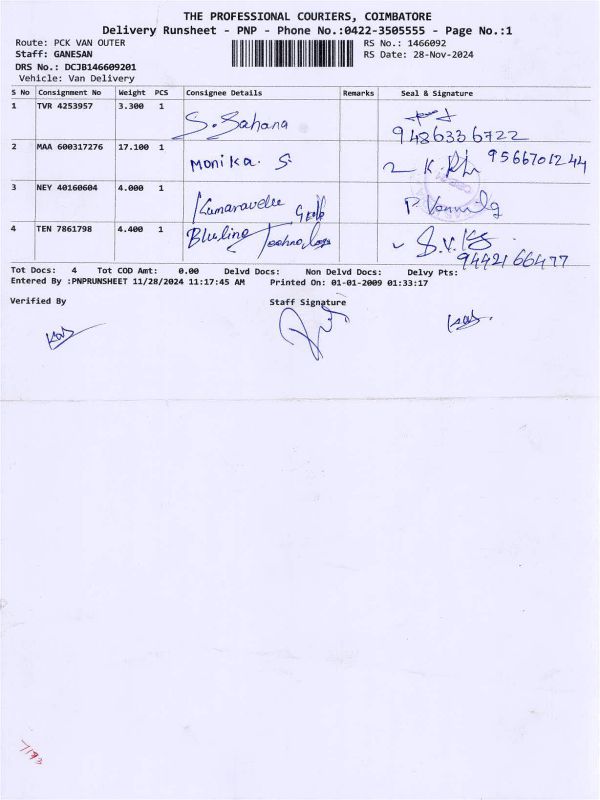 THE PROFESSIONAL COURIERS, COIMBATORE
Delivery Runsheet - PNP - Phone No.:0422-3505555 - Page No.:1
Route: PCK VAN OUTER
RS No.: 1466092
Staff: GANESAN
RS Date: 28-Nov-2024
DRS No.: DCJB146609201
Vehicle: Van Delivery
S No Consignment No Weight PCS Consignee Details Remarks Seal & Signature
1 TVR 4253957 3.300 1 S. Sahana
9486336722
2 MAA 600317276 17.100 1 Monika. S. 9566701244
3 NEY 40160604 4.000 1 Kumaravelu
4 TEN 7861798 4.400 1 Technology
9442166477
Tot Docs: 4 Tot COD Amt: 0.00 Delvd Docs: Non Delvd Docs: Delvy Pts:
Entered By :PNPRUNSHEET 11/28/2024 11:17:45 AM Printed On: 01-01-2009 01:33:17
Verified By Staff Signature